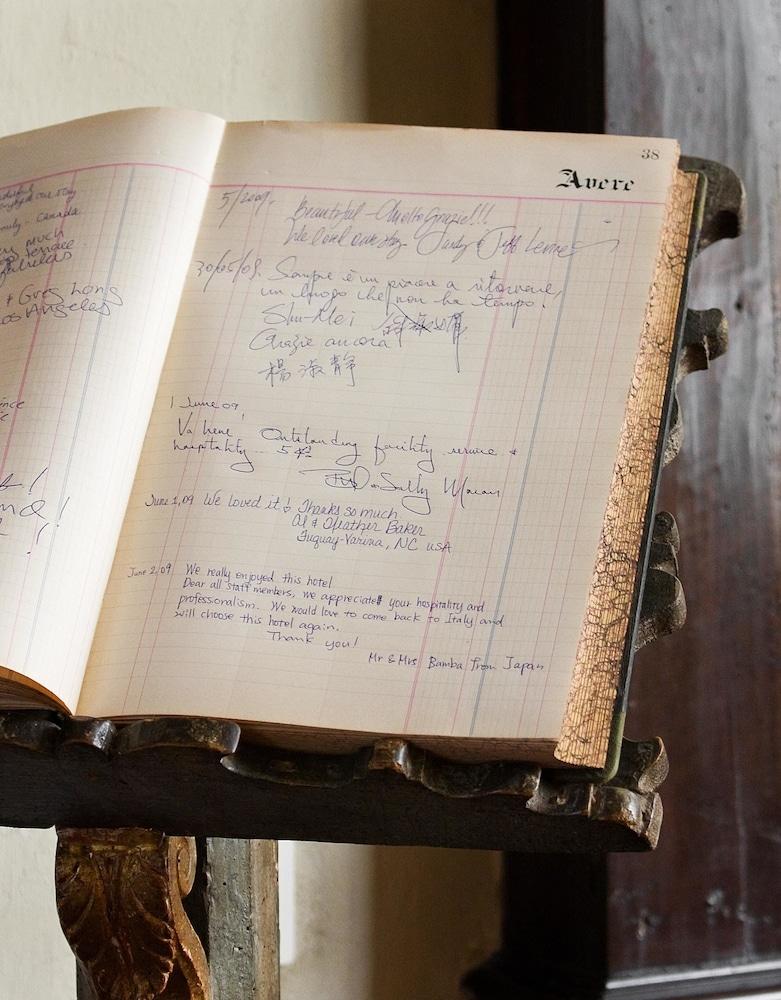 one Day
Canada
much
terrace
& Greg Long
Los Angeles
38
Avere
5/2009.
Beautiful - Molto Grazie!!!
We loved our stay - Judy &
30/05/09. Sempre è un piacere a ritornare,
un luogo che non ha tempo.
Shu-Mei
Grazie ancora
楊淑静
1 June 09
Va bene! Outstanding facility service &
hospitality... 5
Sally
June 1, 09 We loved it! Thanks so much
Al & Heather Baker
Fuquay-Varina, NC USA
June 2, 09 We really enjoyed this hotel
Dear all staff members, we appreciate your hospitality and
professionalism. We would love to come back to Italy and
will choose this hotel again.
Thank you!
Mr & Mrs Bamba from Japan